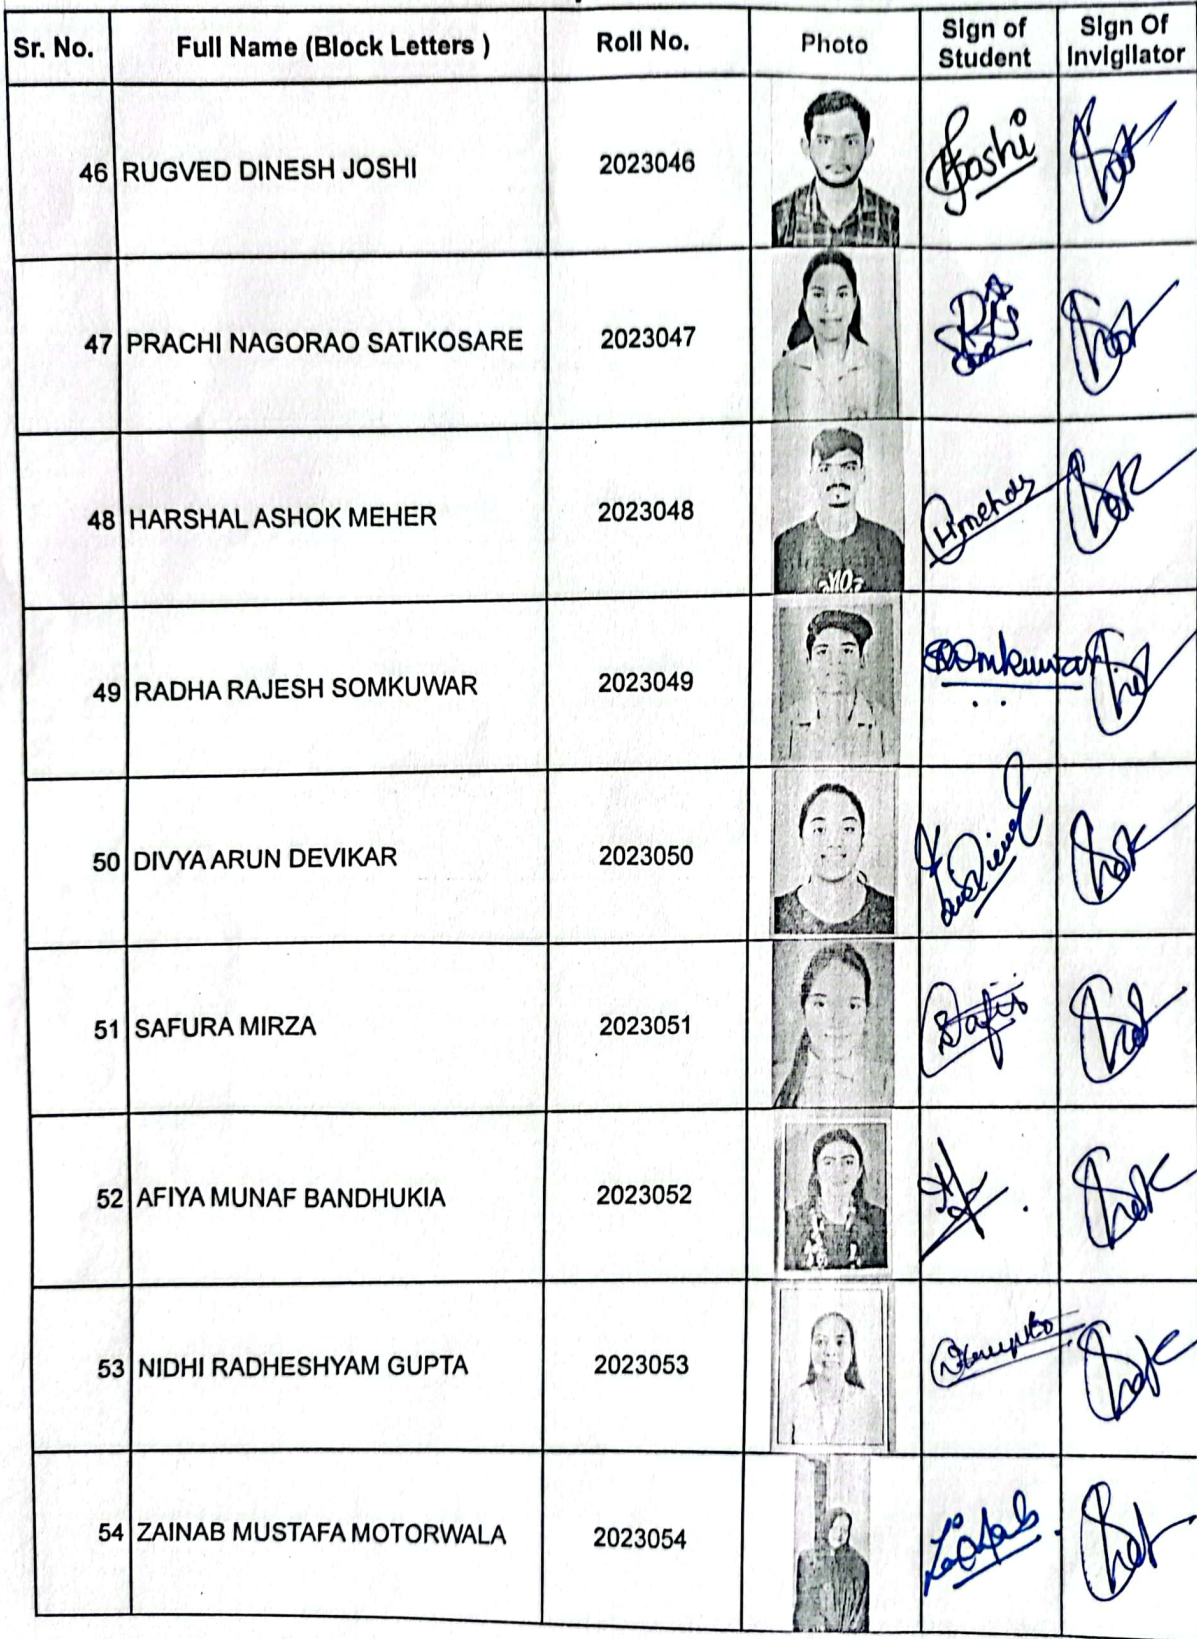 Sr. No. Full Name (Block Letters ) Roll No. Photo Sign of Student Sign Of Invigilator
46 RUGVED DINESH JOSHI 2023046 Joshi
47 PRACHI NAGORAO SATIKOSARE 2023047
48 HARSHAL ASHOK MEHER 2023048
49 RADHA RAJESH SOMKUWAR 2023049 Somkuwar
50 DIVYA ARUN DEVIKAR 2023050
51 SAFURA MIRZA 2023051
52 AFIYA MUNAF BANDHUKIA 2023052
53 NIDHI RADHESHYAM GUPTA 2023053
54 ZAINAB MUSTAFA MOTORWALA 2023054